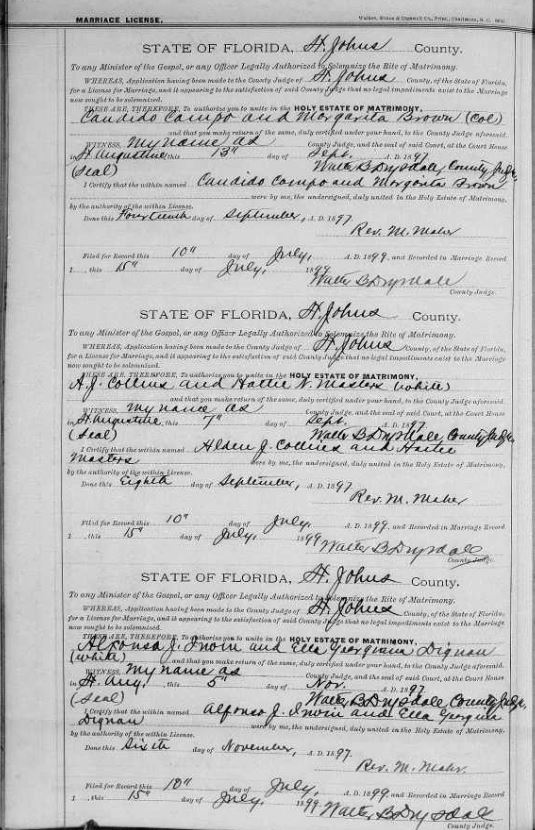 MARRIAGE LICENSE.
STATE OF FLORIDA, St. Johns County.
To any Minister of the Gospel, or any Officer Legally Authorized to Solemnize the Rite of Matrimony.
WHEREAS, Application having been made to the County Judge of St. Johns County, of the State of Florida,
for a License for Marriage, and it appearing to the satisfaction of said County Judge that no legal impediments exist to the Marriage
now sought to be solemnized.
THESE ARE, THEREFORE, To authorize you to unite in the HOLY ESTATE OF MATRIMONY,
Candido Campo and Margarita Brown (Col)
and that you make return of the same, duly certified under your hand, to the County Judge aforesaid.
WITNESS, my name as County Judge, and the seal of said Court, at the Court House
in St. Augustine this 13" day of Sept. A. D. 1897
(Seal) Walter B Drysdale, County Judge,
I Certify that the within named Candido Campo and Margarita Brown
were by me, the undersigned, duly united in the Holy Estate of Matrimony,
by the authority of the within License.
Done this Fourteenth day of September, A. D. 1897.
Rev. M. Maher
Filed for Record this 10" day of July, A. D. 1899. and Recorded in Marriage Record
1, this 15" day of July, 1899
Walter B Drysdale
County Judge.
STATE OF FLORIDA, St. Johns County.
To any Minister of the Gospel, or any Officer Legally Authorized to Solemnize the Rite of Matrimony.
WHEREAS, Application having been made to the County Judge of St. Johns County, of the State of Florida,
for a License for Marriage, and it appearing to the satisfaction of said County Judge that no legal impediments exist to the Marriage
now sought to be solemnized.
THESE ARE, THEREFORE, To authorize you to unite in the HOLY ESTATE OF MATRIMONY,
A. J. Collins and Hattie N. Masters (white)
and that you make return of the same, duly certified under your hand, to the County Judge aforesaid.
WITNESS, my name as County Judge, and the seal of said Court, at the Court House
in St. Augustine this 7" day of Sept. A. D. 1897.
(Seal) Walter B Drysdale, County Judge.
I Certify that the within named Alden J. Collins and Hattie
Masters were by me, the undersigned, duly united in the Holy Estate of Matrimony,
by the authority of the within License.
Done this Eighth day of September, A. D. 1897
Rev. M. Maher
Filed for Record this 10" day of July. A. D. 1899. and Recorded in Marriage Record
1, this 15" day of July, 1899
Walter B Drysdale
County Judge.
STATE OF FLORIDA, St. Johns County.
To any Minister of the Gospel, or any Officer Legally Authorized to Solemnize the Rite of Matrimony.
WHEREAS, Application having been made to the County Judge of St. Johns County, of the State of Florida,
for a License for Marriage, and it appearing to the satisfaction of said County Judge that no legal impediments exist to the Marriage
now sought to be solemnized.
THESE ARE, THEREFORE, To authorize you to unite in the HOLY ESTATE OF MATRIMONY,
Alfonso J. Irwin and Ella Georgiana Dignan
(white) and that you make return of the same, duly certified under your hand, to the County Judge aforesaid.
WITNESS, my name as County Judge, and the seal of said Court, at the Court House
in St. Aug. this 5" day of Nov. A. D. 1897
(Seal) Walter B Drysdale, County Judge,
I Certify that the within named Alfonso J. Irwin and Ella Georgina
Dignan were by me, the undersigned, duly united in the Holy Estate of Matrimony,
by the authority of the within License.
Done this Sixth day of November, A. D. 1897.
Rev. M. Maher.
Filed for Record this 10" day of July, A. D. 1899. and Recorded in Marriage Record
1, this 15" day of July, 1899
Walter B Drysdale
County Judge.